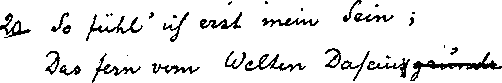 20 So fühl' ich erst mein Sein;
Das fern vom Welten Dasein